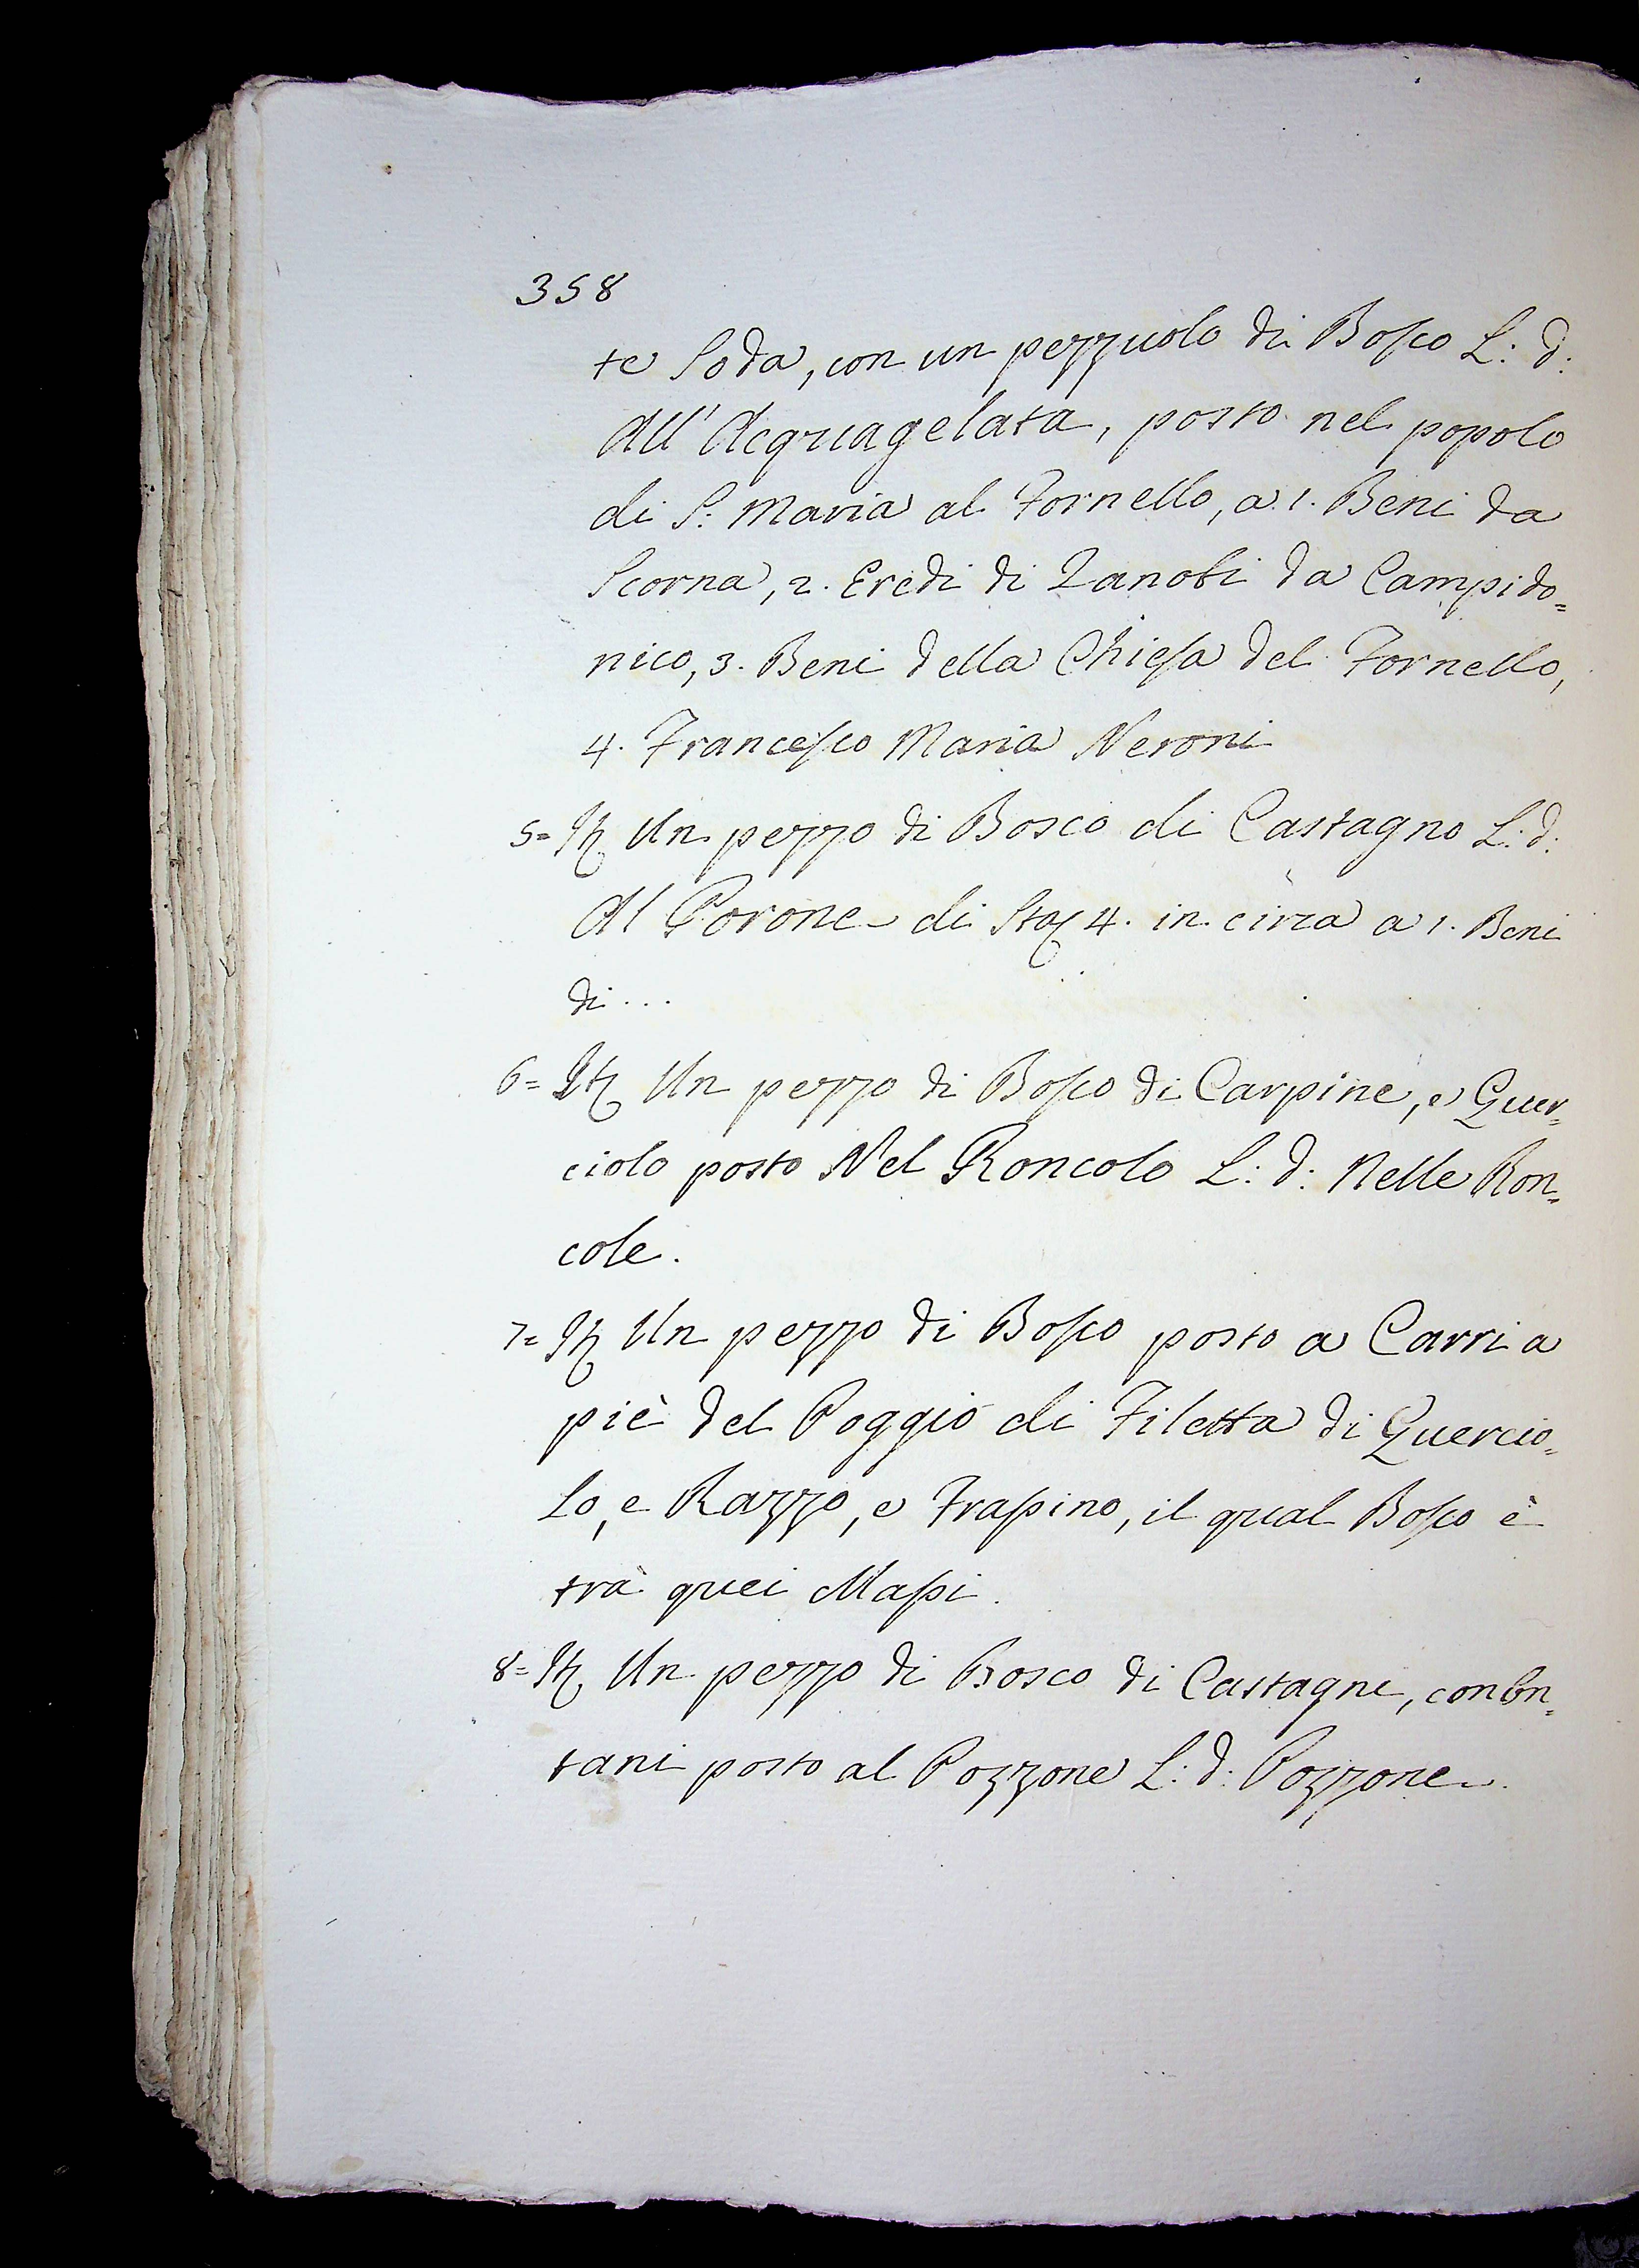 358
te Soda, con un pezzuolo di Bosco L: d:
All'Acquagelata, posto nel popolo
di S: Maria al Fornello, a 1. Beni da
Scorna, 2. Eredi di Zanobi da Campido=
nico, 3. Beni della Chiesa del Fornello,
4. Francesco Maria Neroni
5= It. Un pezzo di Bosco di Castagno L: d:
Al Porone di Sta. 4. in circa a 1. Beni
di ...
6= It. Un pezzo di Bosco di Carpine, e Quer=
ciolo posto Nel Roncolo L: d: Nelle Ron=
cole.
7= It. Un pezzo di Bosco posto a Carri a
piè del Poggio di Filetta di Quercio=
lo, e Razzo, e Frassino, il qual Bosco è
trà quei Massi.
8= It. Un pezzo di Bosco di Castagni, con On=
tani posto al Pozzone L: d: Pozzone.